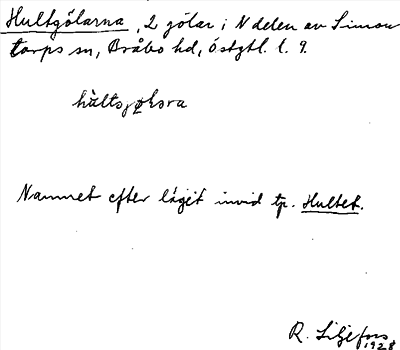 Hultgölarna, 2 gölar i N delen av Simons
torps sn, Bråbo hd, Östgtl. l. 9.
Namnet efter läget invid tp. Hultet.
R. Liljefors
1928